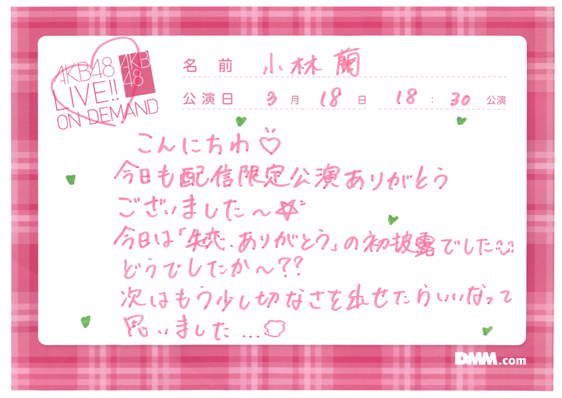 AKB48
LIVE!!
ON DEMAND
AKB
48
名前 小林蘭
公演日 3月18日 18:30公演
こんにちわ♡
今日も配信限定公演ありがとう
ございました〜☆
今日は「失恋、ありがとう」の初披露でした
どうでしたか〜??
次はもう少し切なさを出せたらいいなって
思いました...
DMM.com